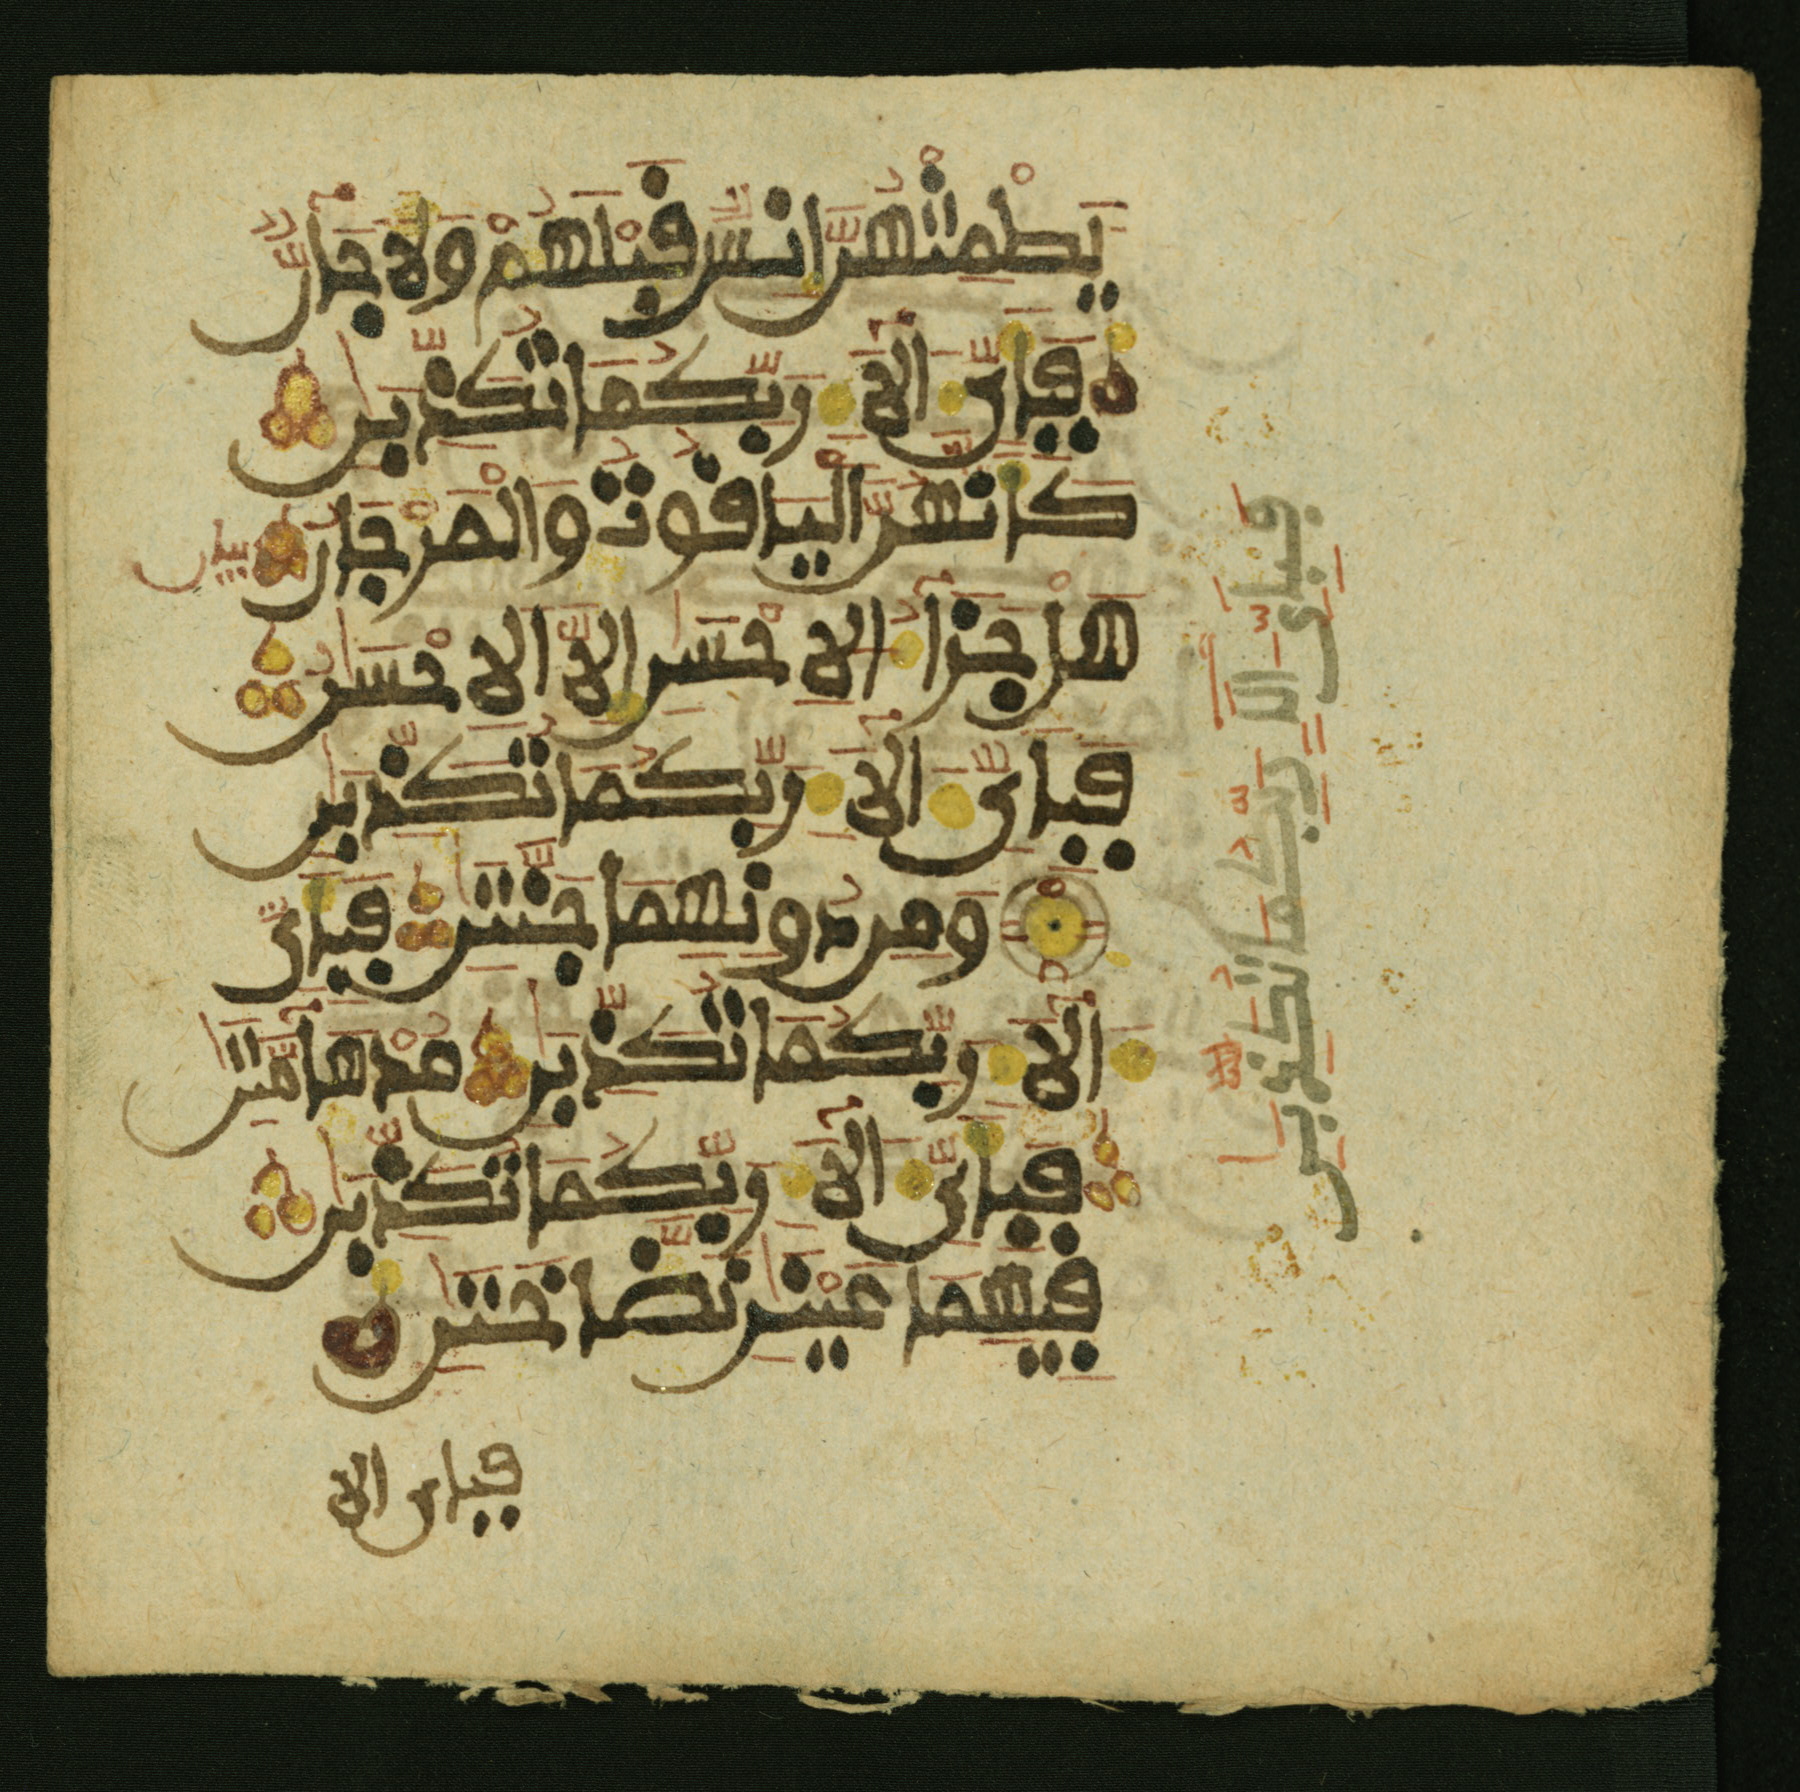 يطمثهن انس قبلهم ولا جان
فباي الا ربكما تكذبن
كانهن الياقوت والمرجان
هل جزا الاحسن الا الاحسن
فباي الا ربكما تكذبن
ومن دونهما جنتن فباي
الا ربكما تكذبن مدهامتن
فباي الا ربكما تكذبن
فيهما عينن نضاختن
فباي الا
فباي الا ربكما تكذبن